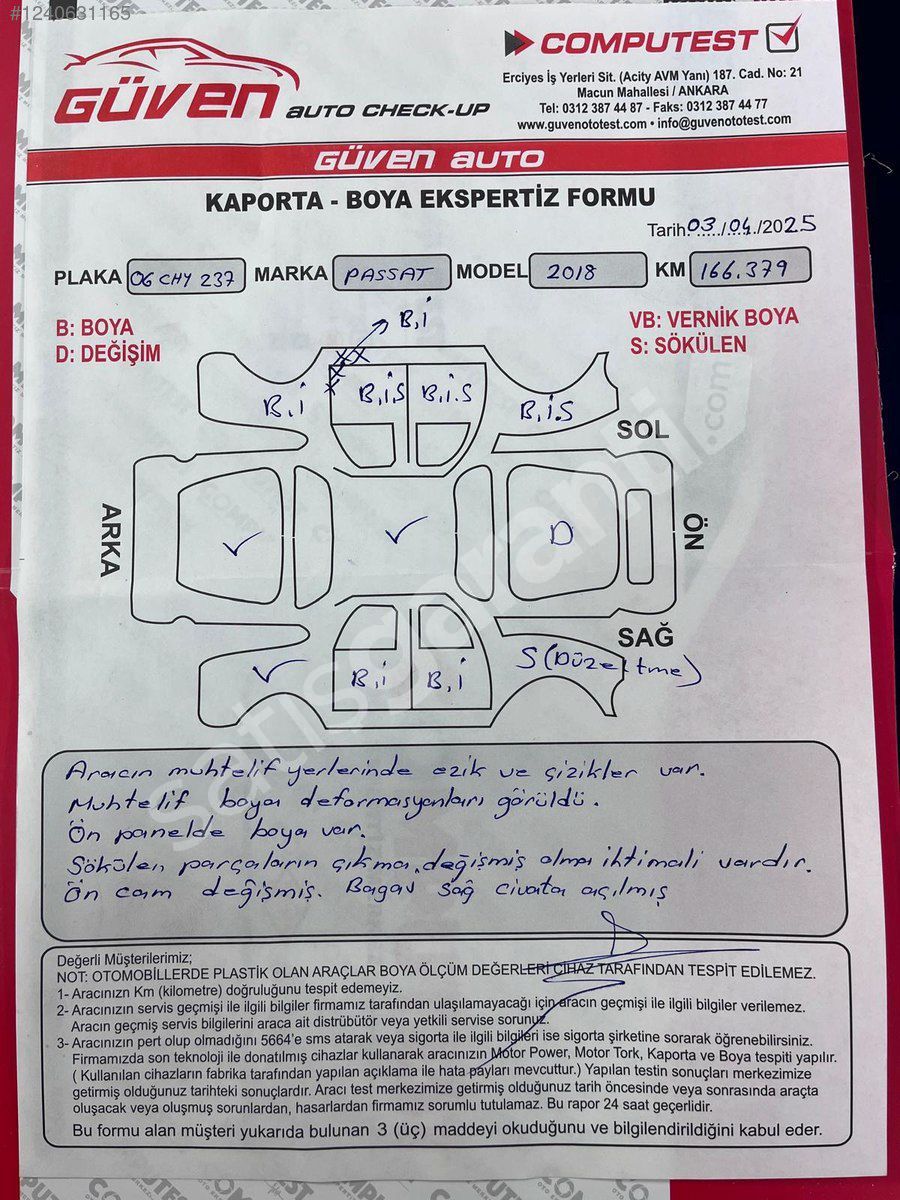 #1240631165
GÜVEN AUTO CHECK-UP
COMPUTEST
Erciyes İş Yerleri Sit. (Acity AVM Yanı) 187. Cad. No: 21
Macun Mahallesi / ANKARA
Tel: 0312 387 44 87 - Faks: 0312 387 44 77
www.guvenototest.com • info@guvenototest.com
GÜVEN AUTO
KAPORTA - BOYA EKSPERTİZ FORMU
Tarih: 03/04/2025
PLAKA 06 CHY 237 MARKA PASSAT MODEL 2018 KM 166.379
B: BOYA
D: DEĞİŞİM
VB: VERNİK BOYA
S: SÖKÜLEN
B,İ
B,İ
B,İ,S
B,İ.S
B,İ.S
SOL
ARKA
ÖN
D
SAĞ
B,İ
B,İ
S (Düzeltme)
satisgaranti.com
Aracın muhtelif yerlerinde ezik ve çizikler var.
Muhtelif boya deformasyonları görüldü.
Ön panelde boya var.
Sökülen parçaların çıkma, değişmiş olma ihtimali vardır.
Ön cam değişmiş. Bagaj sağ civata açılmış
Değerli Müşterilerimiz;
NOT: OTOMOBİLLERDE PLASTİK OLAN ARAÇLAR BOYA ÖLÇÜM DEĞERLERİ CİHAZ TARAFINDAN TESPİT EDİLEMEZ.
1- Aracınızn Km (kilometre) doğruluğunu tespit edemeyiz.
2- Aracınızın servis geçmişi ile ilgili bilgiler firmamız tarafından ulaşılamayacağı için aracın geçmişi ile ilgili bilgiler verilemez.
Aracın geçmiş servis bilgilerini araca ait distrübütör veya yetkili servise sorunuz.
3- Aracınızın pert olup olmadığını 5664'e sms atarak veya sigorta ile ilgili bilgileri ise sigorta şirketine sorarak öğrenebilirsiniz.
Firmamızda son teknoloji ile donatılmış cihazlar kullanarak aracınızın Motor Power, Motor Tork, Kaporta ve Boya tespiti yapılır.
( Kullanılan cihazların fabrika tarafından yapılan açıklama ile hata payları mevcuttur.) Yapılan testin sonuçları merkezimize
getirmiş olduğunuz tarihteki sonuçlardır. Aracı test merkezimize getirmiş olduğunuz tarih öncesinde veya sonrasında araçta
oluşacak veya oluşmuş sorunlardan, hasarlardan firmamız sorumlu tutulamaz. Bu rapor 24 saat geçerlidir.
Bu formu alan müşteri yukarıda bulunan 3 (üç) maddeyi okuduğunu ve bilgilendirildiğini kabul eder.